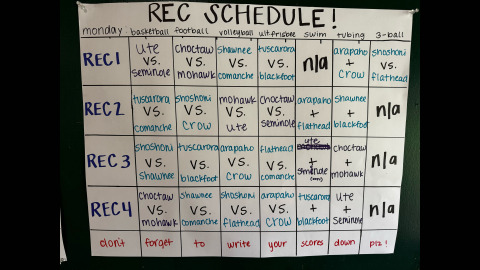 REC SCHEDULE!
monday basketball football volleyball ult.frisbee swim tubing 3-ball
REC1 ute vs. seminole choctaw vs. mohawk shawnee vs. comanche tuscarora vs. blackfoot n/a arapaho + crow shoshoni vs. flathead
REC2 tuscarora vs. comanche shoshoni vs. crow mohawk vs. ute choctaw vs. seminole arapaho + flathead shawnee + blackfoot n/a
REC3 shoshoni vs. shawnee tuscarora vs. blackfoot arapaho vs. crow flathead vs. comanche ute + seminole choctaw + mohawk n/a
REC4 choctaw vs. mohawk shawnee vs. comanche shoshoni vs. flathead arapaho vs. crow tuscarora + blackfoot ute + seminole n/a
don't forget to write your scores down plz!